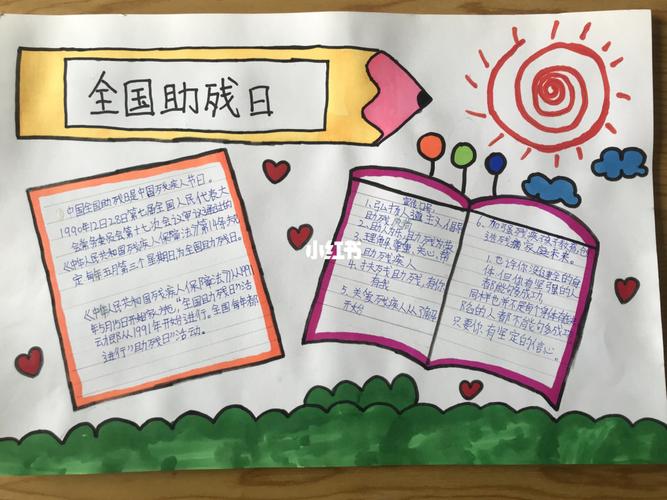 全国助残日
中国全国助残日是中国残疾人节日。
1990年12月28日第七届全国人民代表大
会常务委员会第十七次会议审议通过的
《中华人民共和国残疾人保障法》第14条规
定每年五月第三个星期日为全国助残日。
《中华人民共和国残疾人保障法》从1991
年5月15日开始实施，"全国助残日"活
动即从1991年开始进行。全国每年都
进行"助残日"活动。
1、弘扬人道主义倡导
助残风尚
2、助人
3、理解、尊重、关心、帮
助残疾人
4、扶残助残，有你
有我
5、关爱残疾人从
开始
6、加强残疾孩子教育,促
进残障
1.也许你没有健全的身
体,但有坚强的人
都能够成功,
同样也并不是每个身体
陷的人都不能够成功
只要你有坚定的信心。
小红书